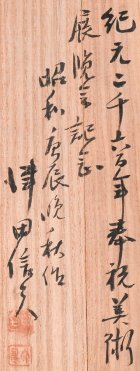 紀元二千六百年奉祝美術
展覧会記念
昭和庚辰晩秋作
信